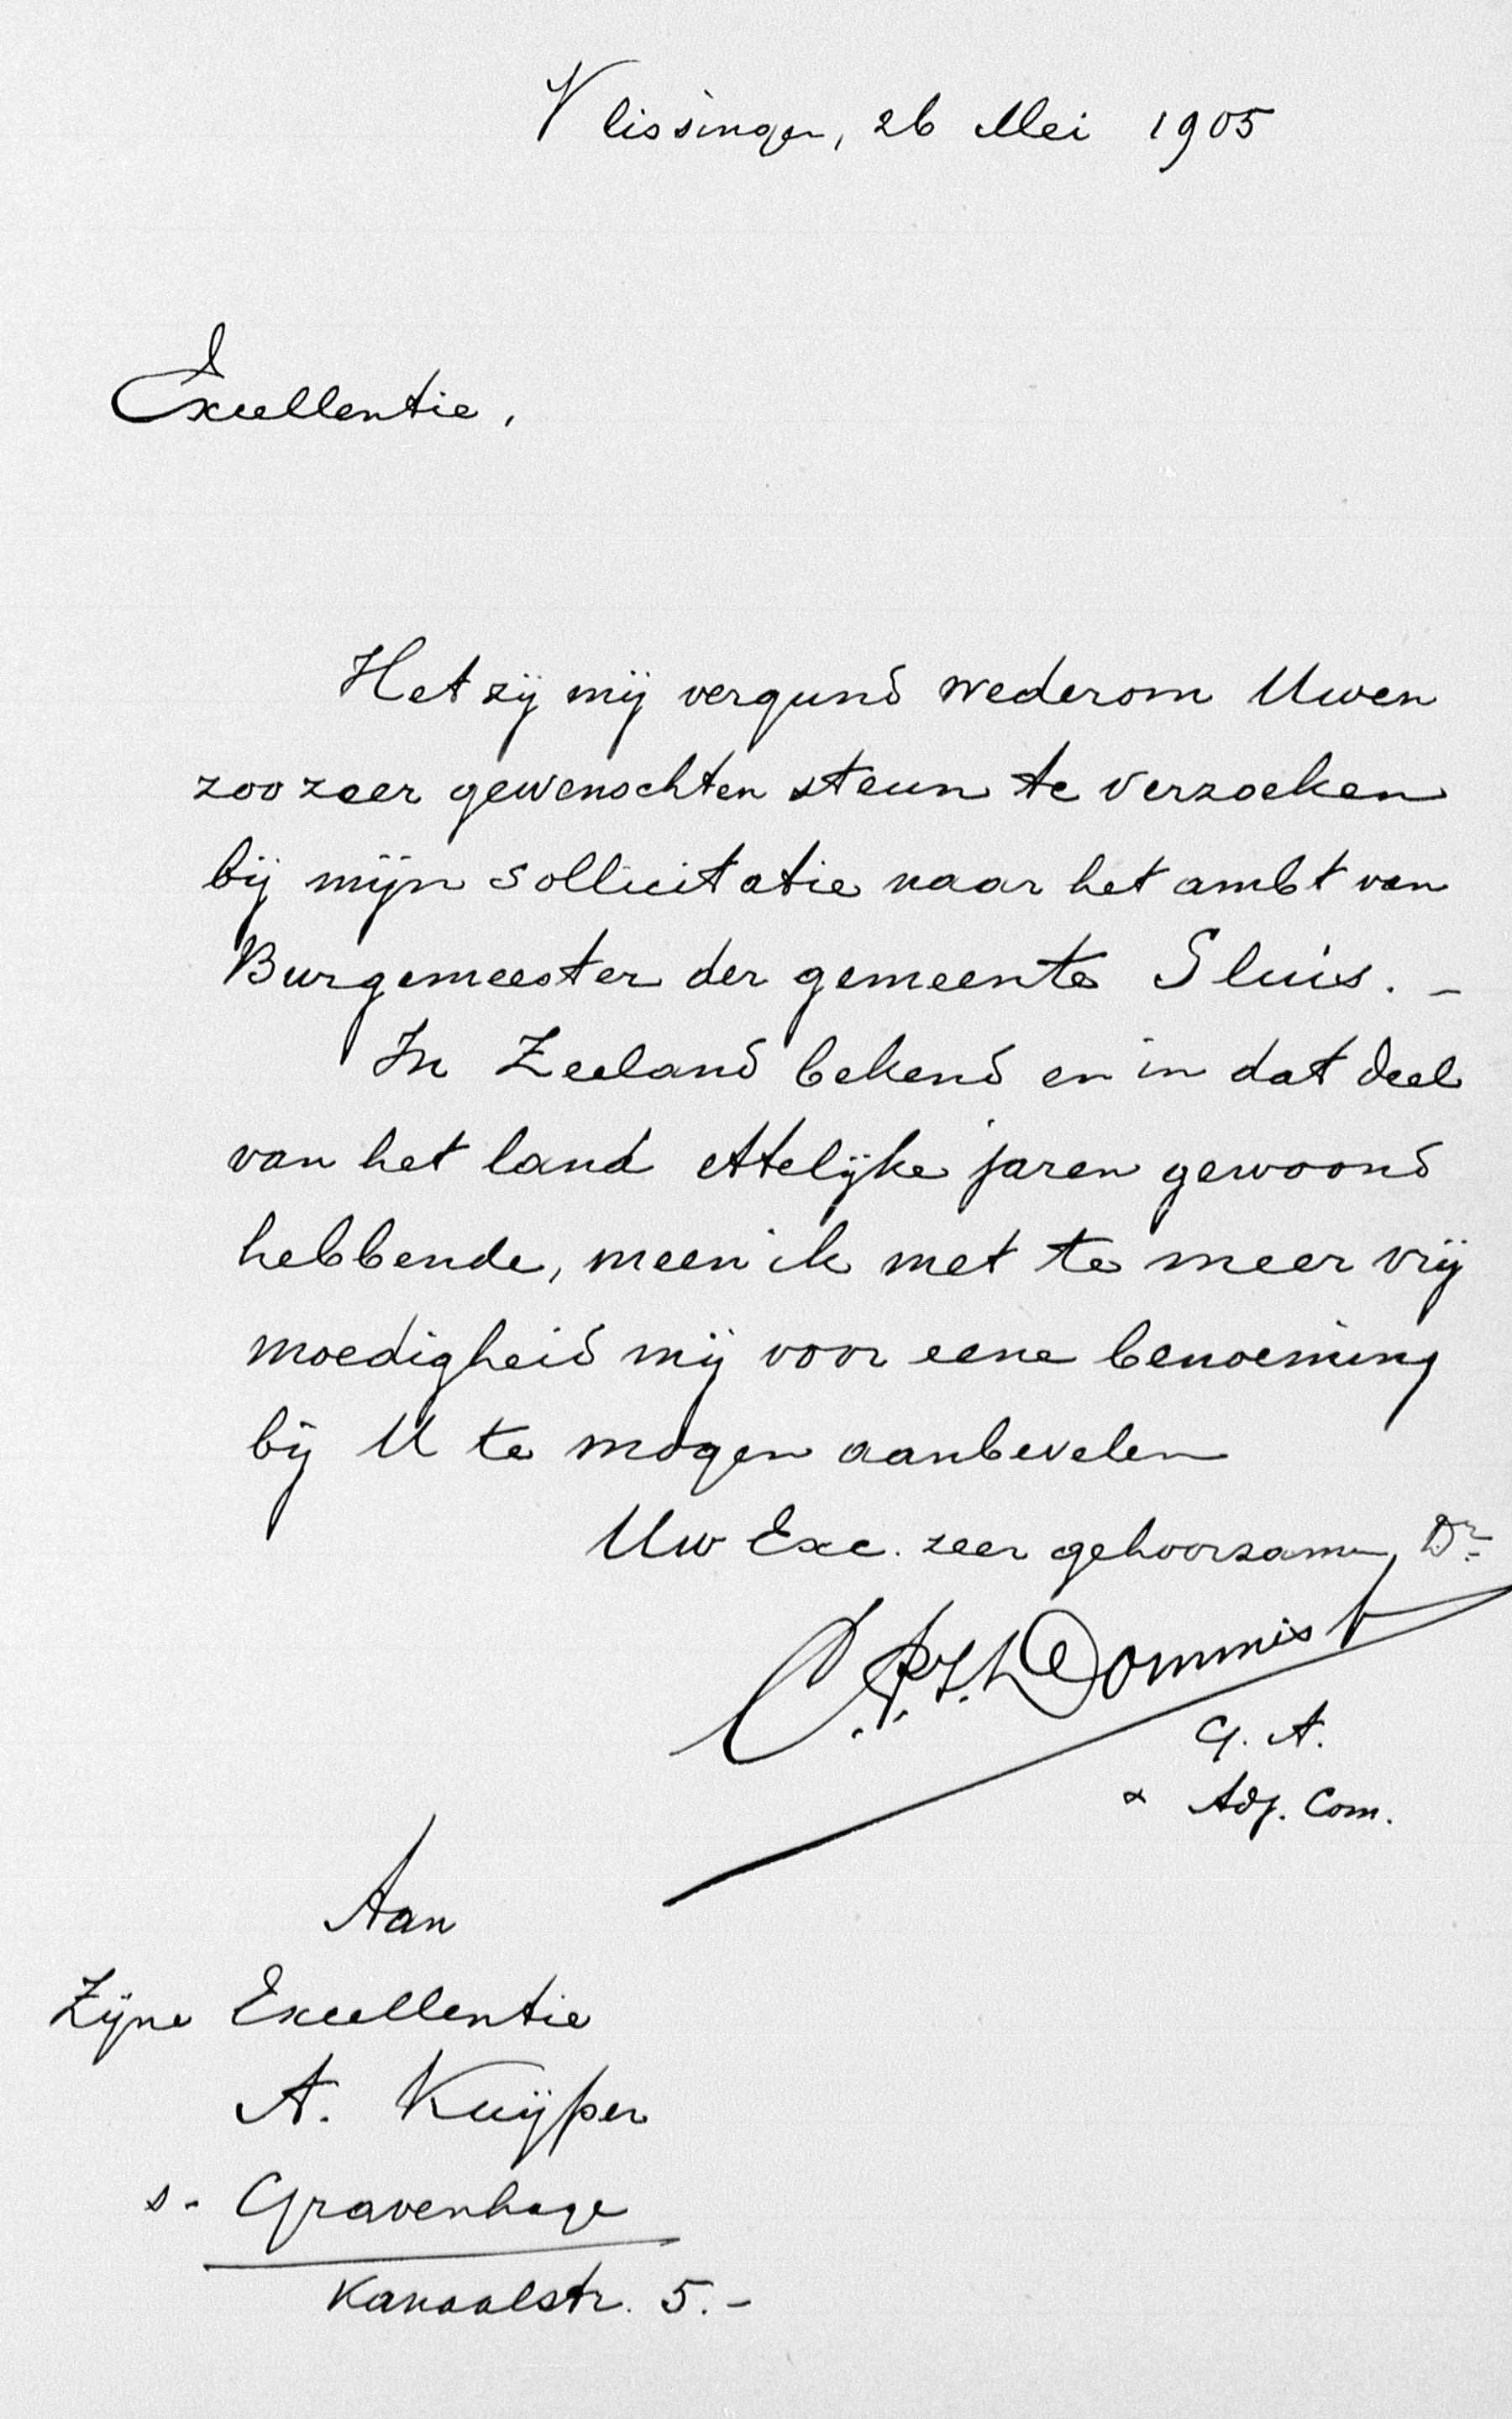 Vlissingen, 26 Mei 1905
Excellentie,
Het zij mij vergund wederom Uwen
zoo zeer gewenschten steun te verzoeken
bij mijn sollicitatie naar het ambt van
Burgemeester der gemeente Sluis. -
In Zeeland bekend en in dat deel
van het land ettelijke jaren gewoond
hebbende, meen ik met te meer vrij
moedigheid mij voor eene benoeming
bij U te mogen aanbevelen
Uw Exc. zeer gehoorzame Dr
Dommisse
G. A.
Adj. Com.
Aan
Zijne Excellentie
A. Kuijper
s- Gravenhage
Kanaalstr. 5.-